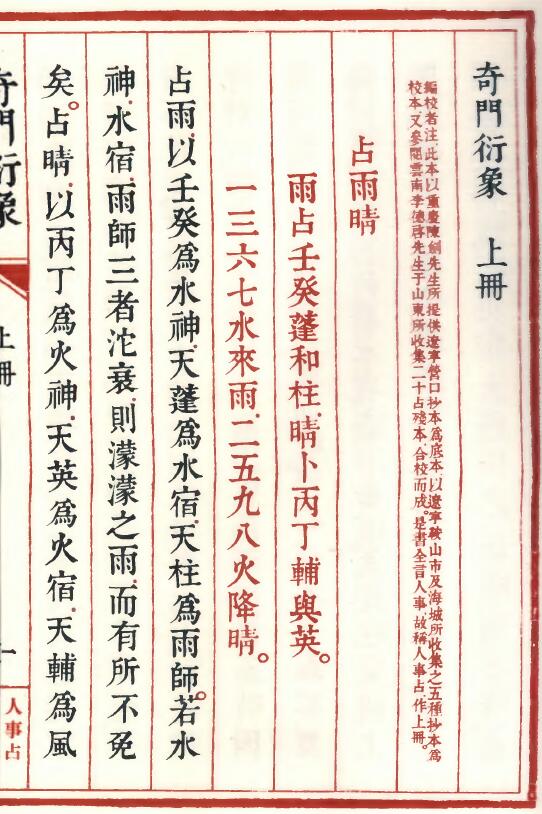 奇門衍象　上冊
編校者注，此本以重慶陳劍先生所提供遼寧營口抄本爲底本，以遼寧鞍山市及海城所收集之五種抄本爲
校本，又參閱雲南李德啓先生于山東所收集二十占殘本，合校而成。是書全言人事，故稱人事占，作上冊。
占雨晴
雨占壬癸蓬和柱，晴卜丙丁輔與英。
一三六七水來雨，二五九八火降晴。
占雨，以壬癸爲水神，天蓬爲水宿，天柱爲雨師。若水
神，水宿，雨師三者沱衰，則濛濛之雨，而有所不免
矣。占晴，以丙丁爲火神，天英爲火宿，天輔爲風
奇門衍象
上冊
一
人事占